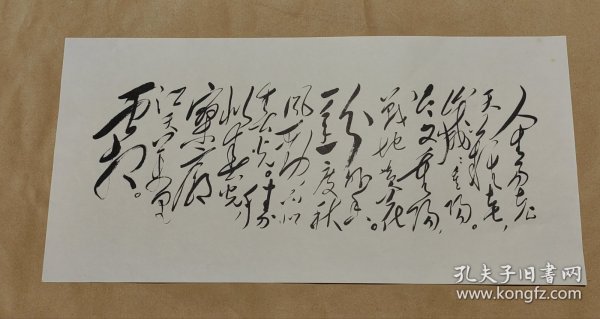 人生易老
天難老,
歲歲重陽。
今又重陽,
戰地黄花
分外香。
一年一度秋
風勁不似
春光。勝
似春光,
寥廓
江天萬里
霜。
孔夫子旧书网
www.kongfz.com